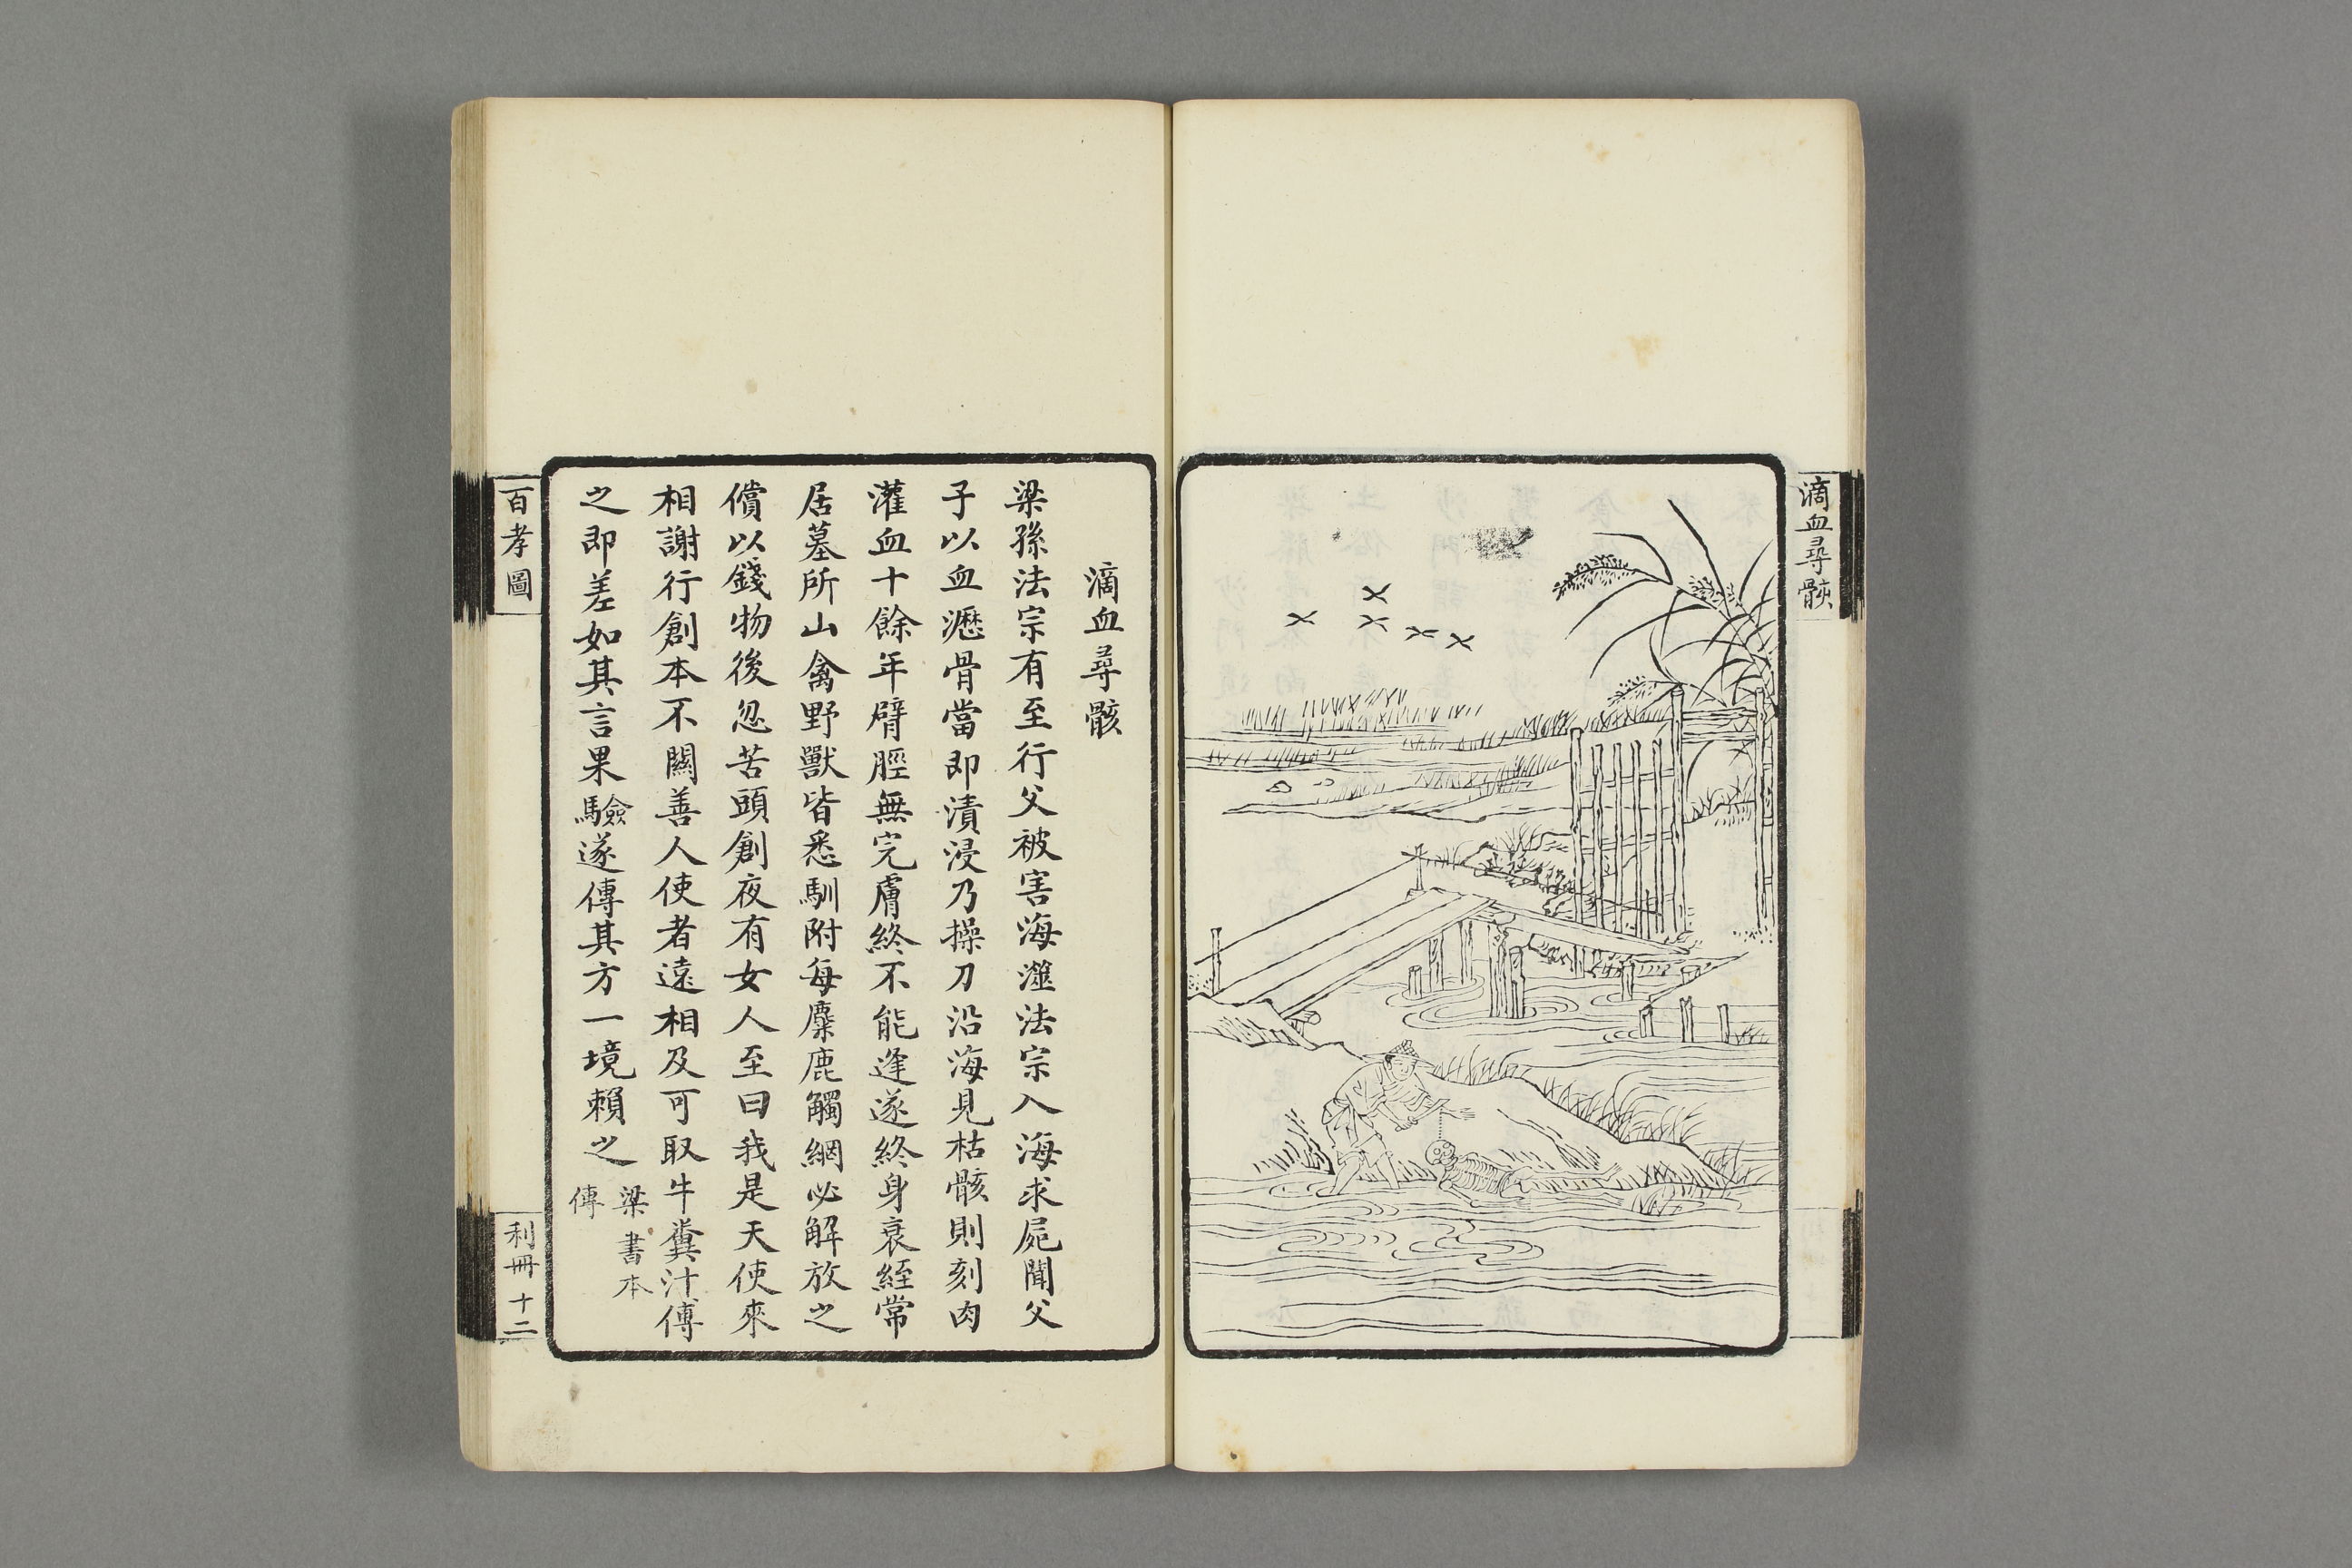 滴血尋骸
滴血尋骸
梁孫法宗有至行父被害海澨法宗入海求屍聞父
子以血瀝骨當即漬浸乃操刀沿海見枯骸則刻肉
灌血十餘年臂脛無完膚終不能逢遂終身衰絰常
居墓所山禽野獸皆悉馴附每麋鹿觸網必解放之
償以錢物後忽苦頭創夜有女人至曰我是天使來
相謝行創本不關善人使者遠相及可取牛糞汁傅
之即差如其言果驗遂傳其方一境賴之
梁書本
傳
百孝圖
利冊 十二